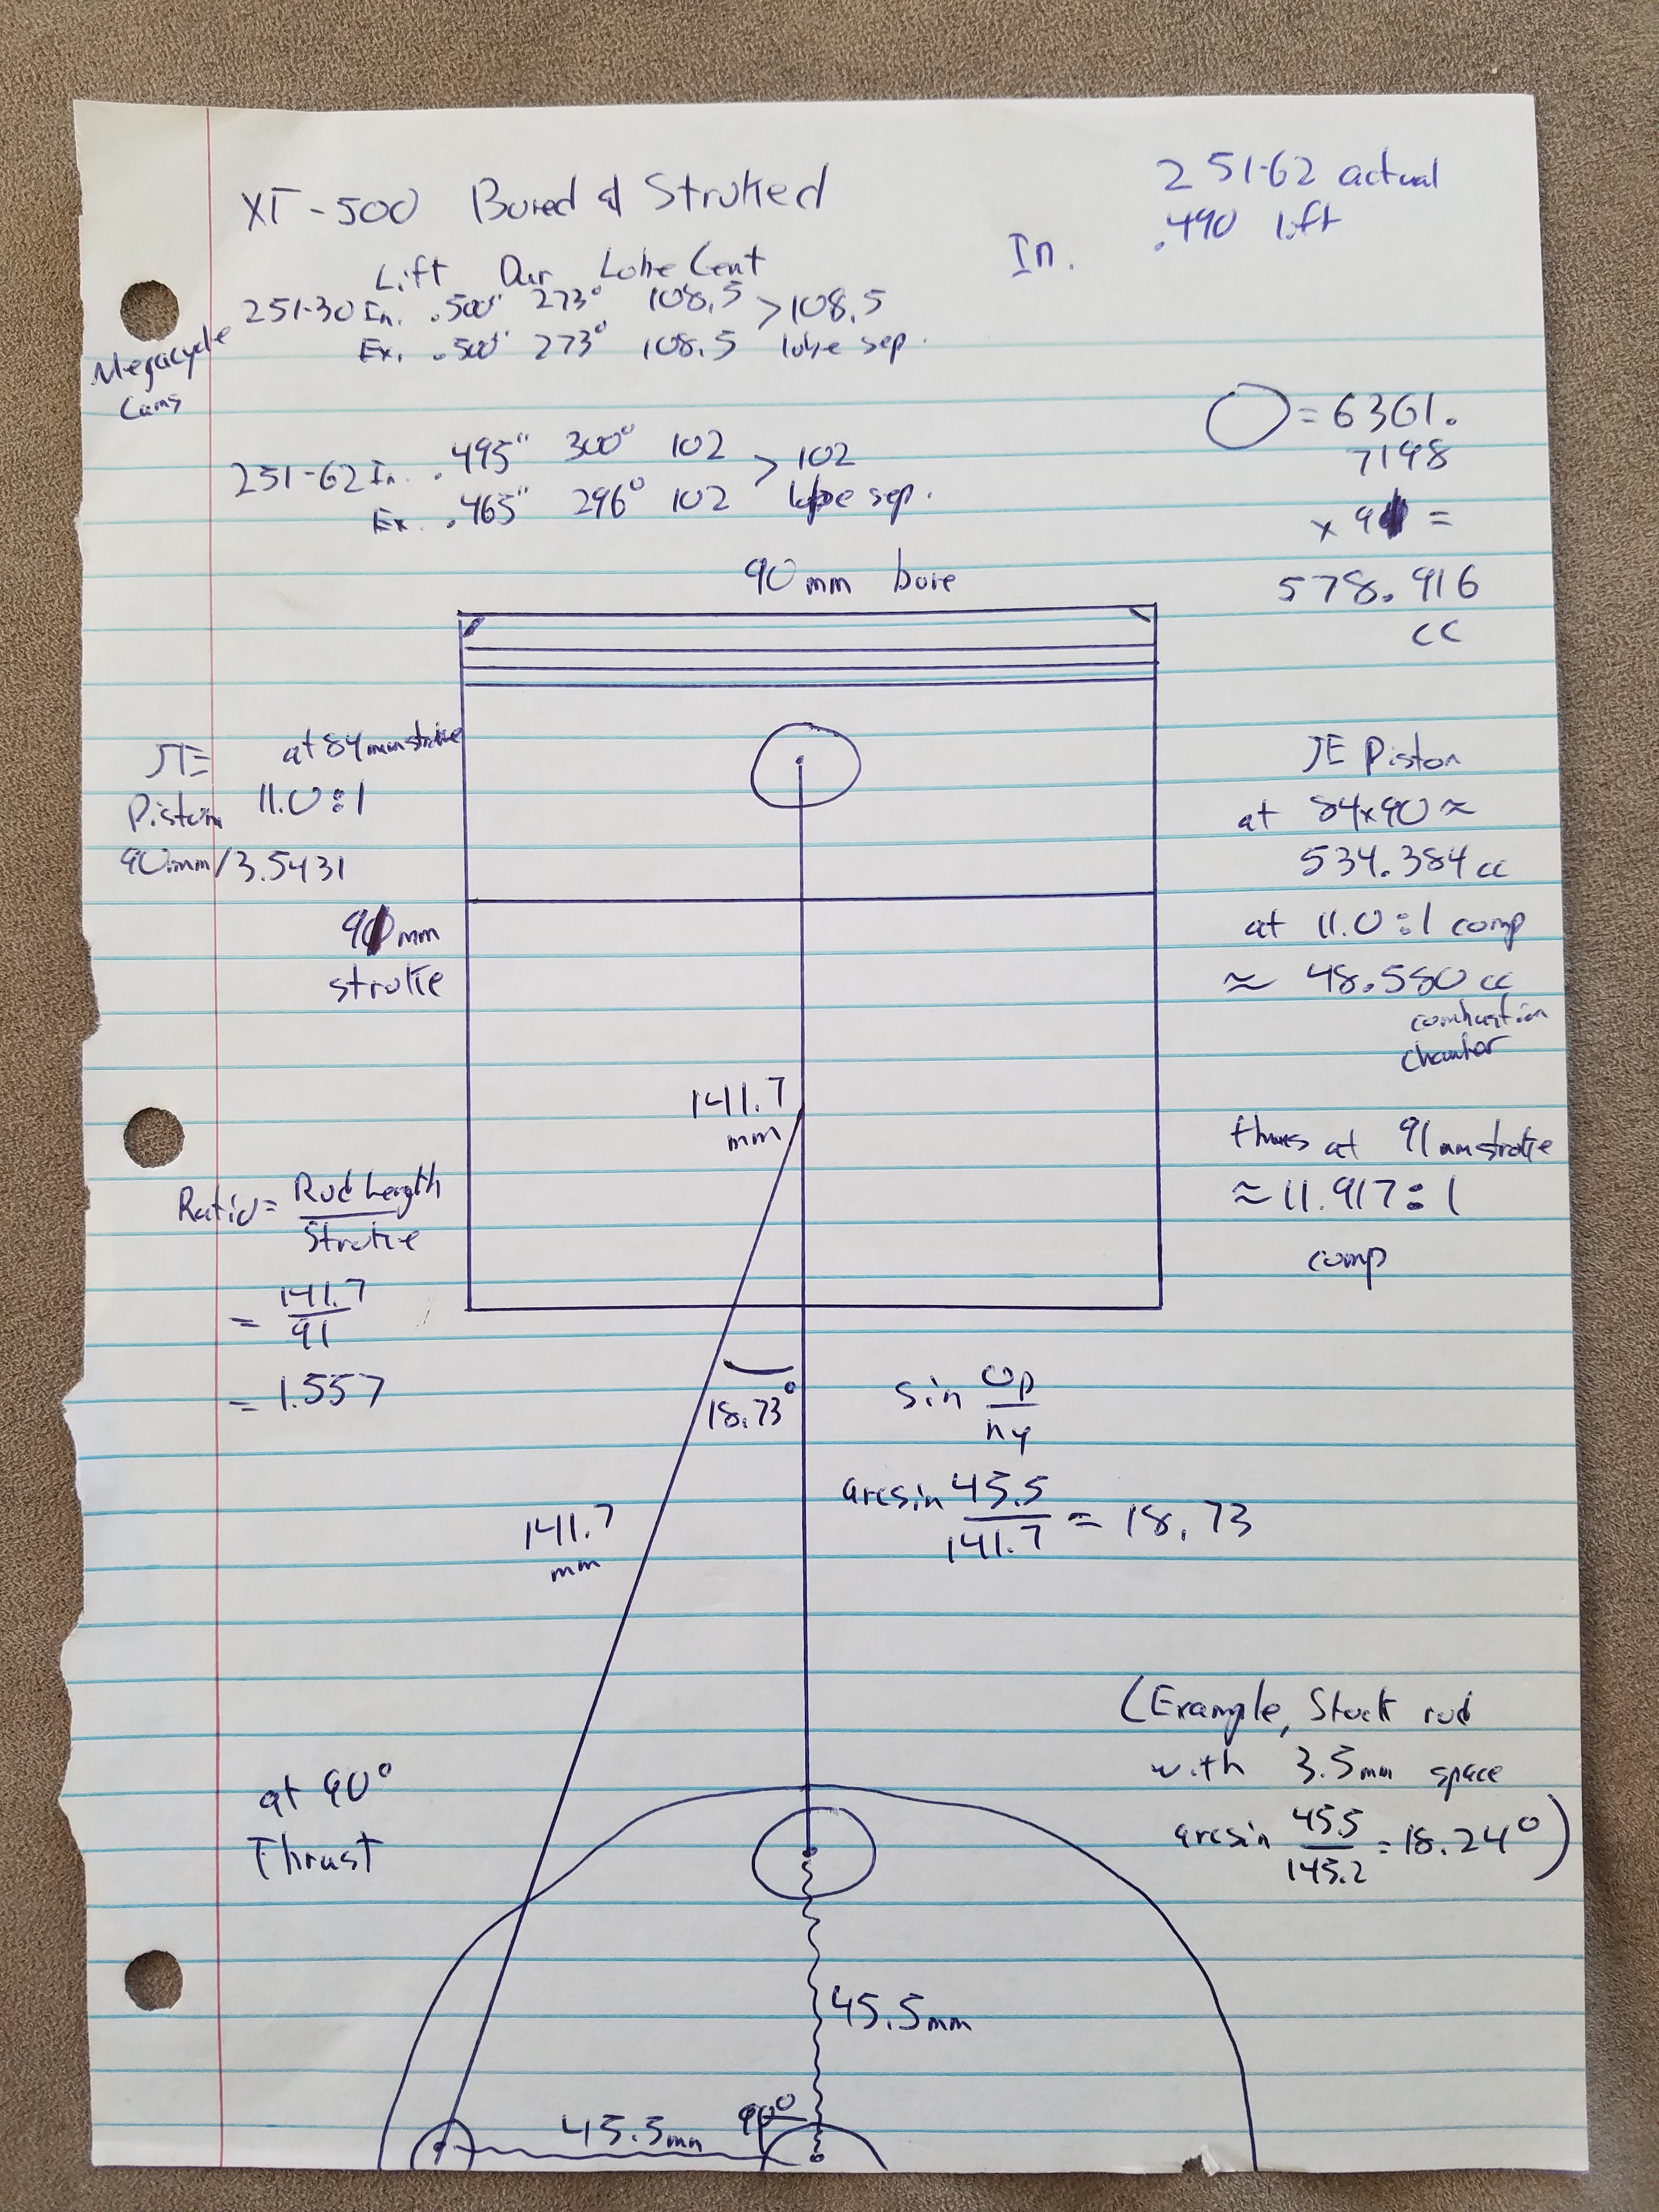 XT-500 Bored & Stroked
251-62 actual
In. .490 lift
Lift Dur Lobe Cent
251-30 In. .500" 273° 108.5 > 108.5
Ex. .500" 273° 108.5 lobe sep.
Megacycle
Cams
251-62 In. .495" 300° 102 > 102
Ex. .465" 296° 102 lobe sep.
= 6361.
7198
x 91 =
578.916
cc
90mm bore
JE at 84mm stroke
Piston 11.0:1
90mm/3.5431
91mm
stroke
JE Piston
at 84x90 ≈
534.384 cc
at 11.0:1 comp
≈ 48.580 cc
combustion
chamber
thus at 91mm stroke
≈ 11.917:1
comp
141.7
mm
Ratio = Rod Length
Stroke
= 141.7
91
= 1.557
18.73°
sin op
hy
arcsin 45.5
141.7 = 18.73
141.7
mm
(Example, Stock rod
with 3.5mm space
arcsin 45.5
145.2 = 18.24°)
at 90°
Thrust
45.5mm
90°
45.5mm